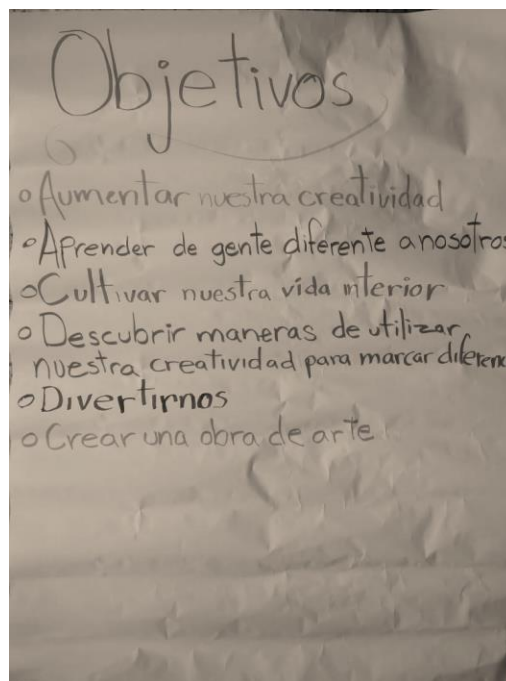 Objetivos
o Aumentar nuestra creatividad
o Aprender de gente diferente a nosotros
o Cultivar nuestra vida interior
o Descubrir maneras de utilizar
nuestra creatividad para marcar diferenc
o Divertirnos
o Crear una obra de arte